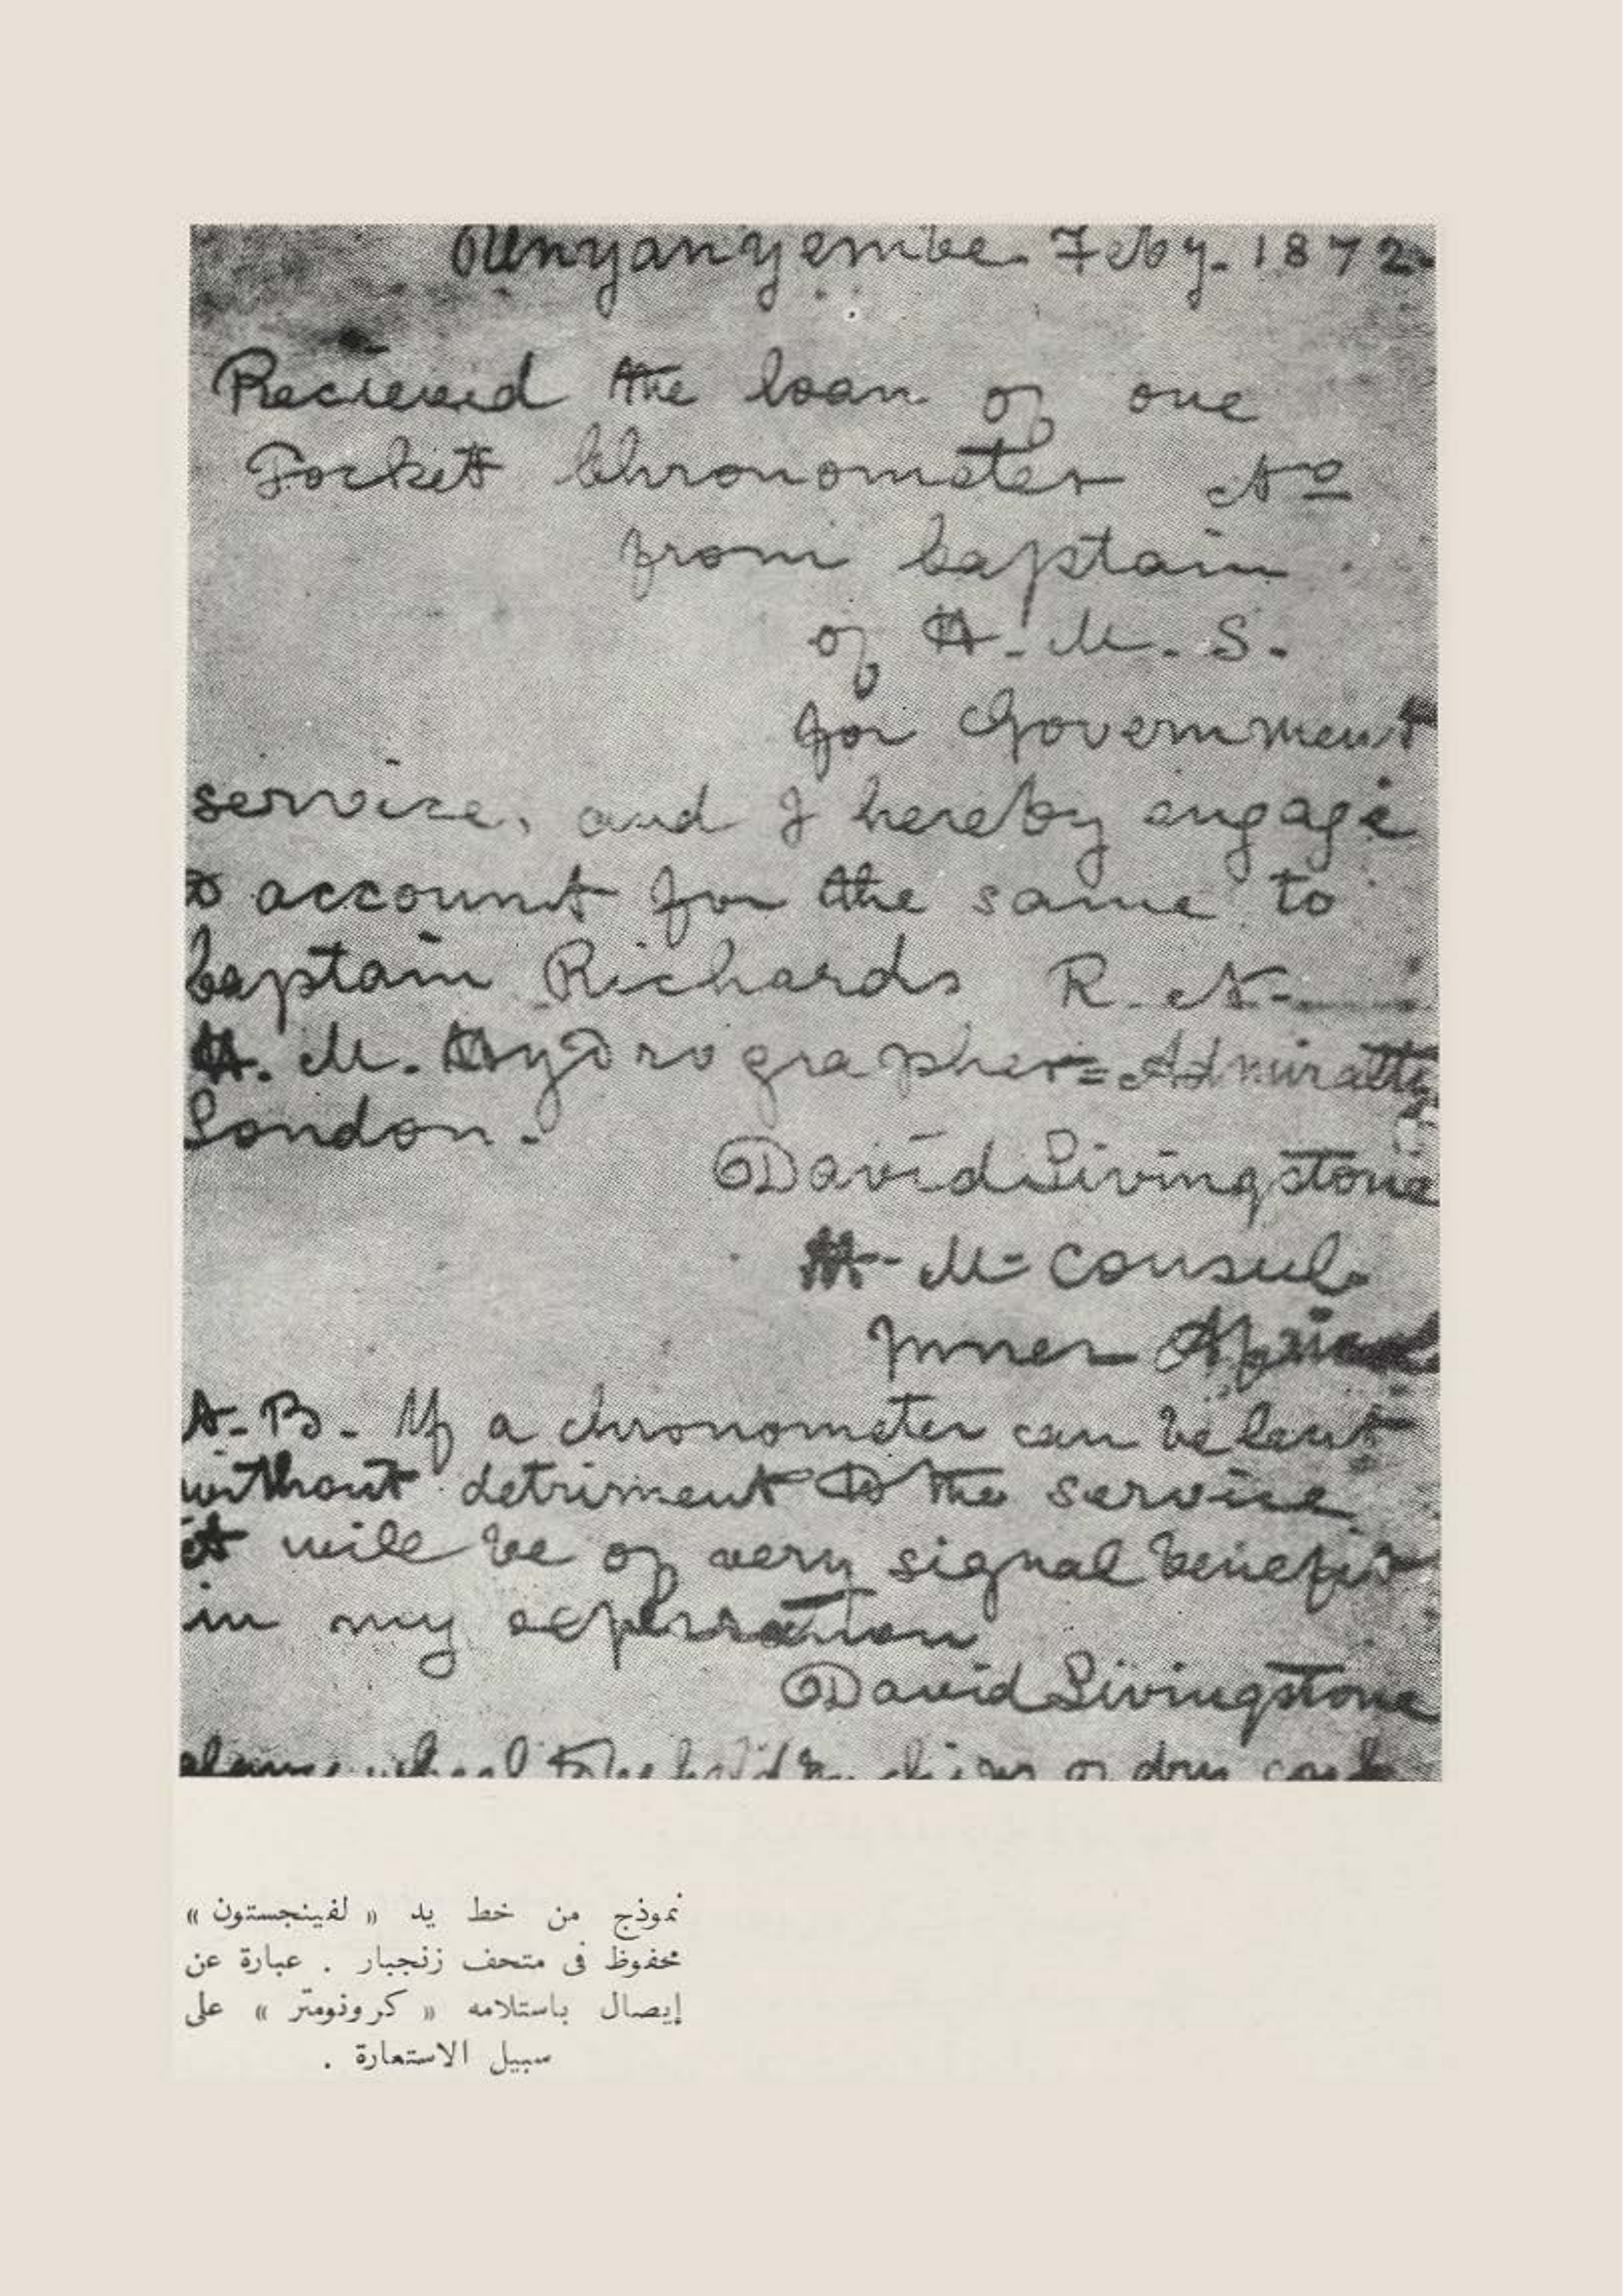 Unyanyembe. Feby. 1872.
Recieved the loan of one
Pocket Chronometer No
from Captain
of H. M. S.
for Government
service, and I hereby engage
to account for the same to
Captain Richards R. N.
H. M. Hydrographer = Admiralty
London.
David Livingstone
H. M = Consul
Inner Africa
N. B. If a chronometer can be lent
without detriment to the service
it will be of very signal benefit
in my exploration
David Livingstone
wheel to be held by chips or dry cork
نموذج من خط يد « لفينجستون »
محفوظ فى متحف زنجبار . عبارة عن
إيصال باستلامه « كرونومتر » على
سبيل الاستعارة .